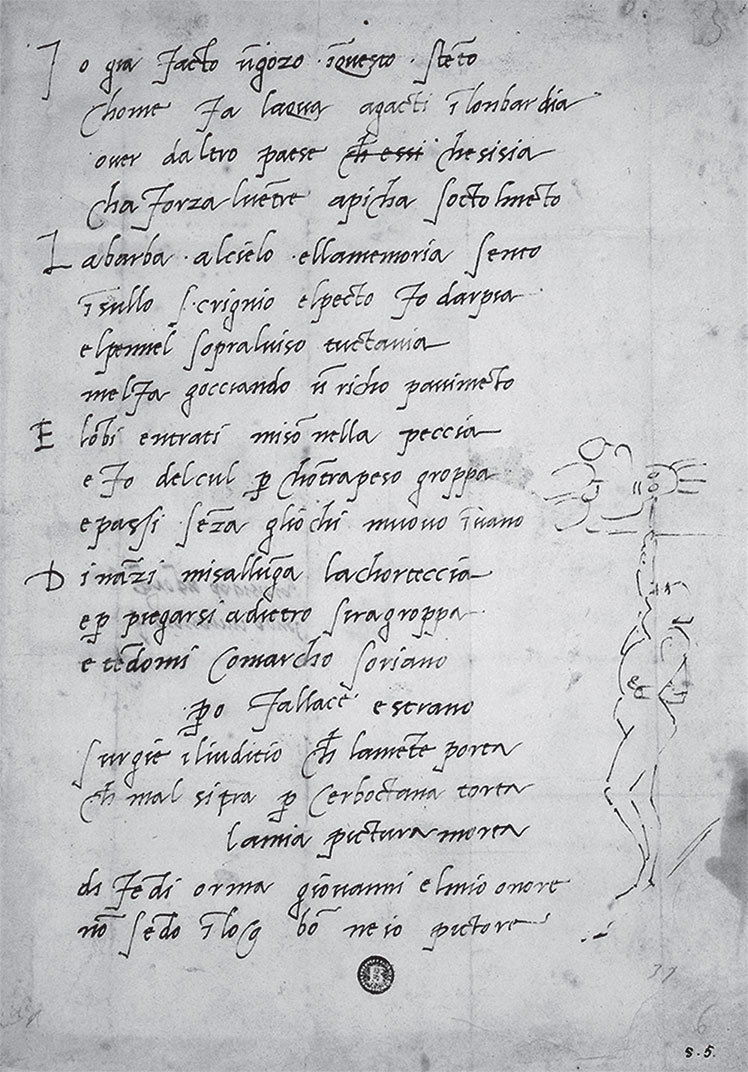 Io gia facto ū gozo ī questo stēto
chome fa laqua agacti ī lonbardia
over daltro paese ch̄ essi chesisia
cha forza lvētre apicha socto lmēto
La barba alcielo ellamemoria sento
ī sullo scrignio elpecto fo darpia
elpennel sopralviso tuctavia
melfa gocciando ū richo pavimēto
E lōbi entrati misō nella peccia
e fo delcul p̱ chōtrapeso groppa
e passi sēza gliochi muovo īvano
Dināzi misallūga lachorteccia
e p̱ piegarsi adietro siragroppa
e tēdomi comarcho soriano
p̱o fallace estrano
surgie iliuditio ch̄ lamēte porta
ch̄ mal sitra p̱ cerboctana torta
lamia pictura morta
di fēdi orma giovanni elmio onore
nō sēdo ī loco bō ne io pictore
37
6
s.5.